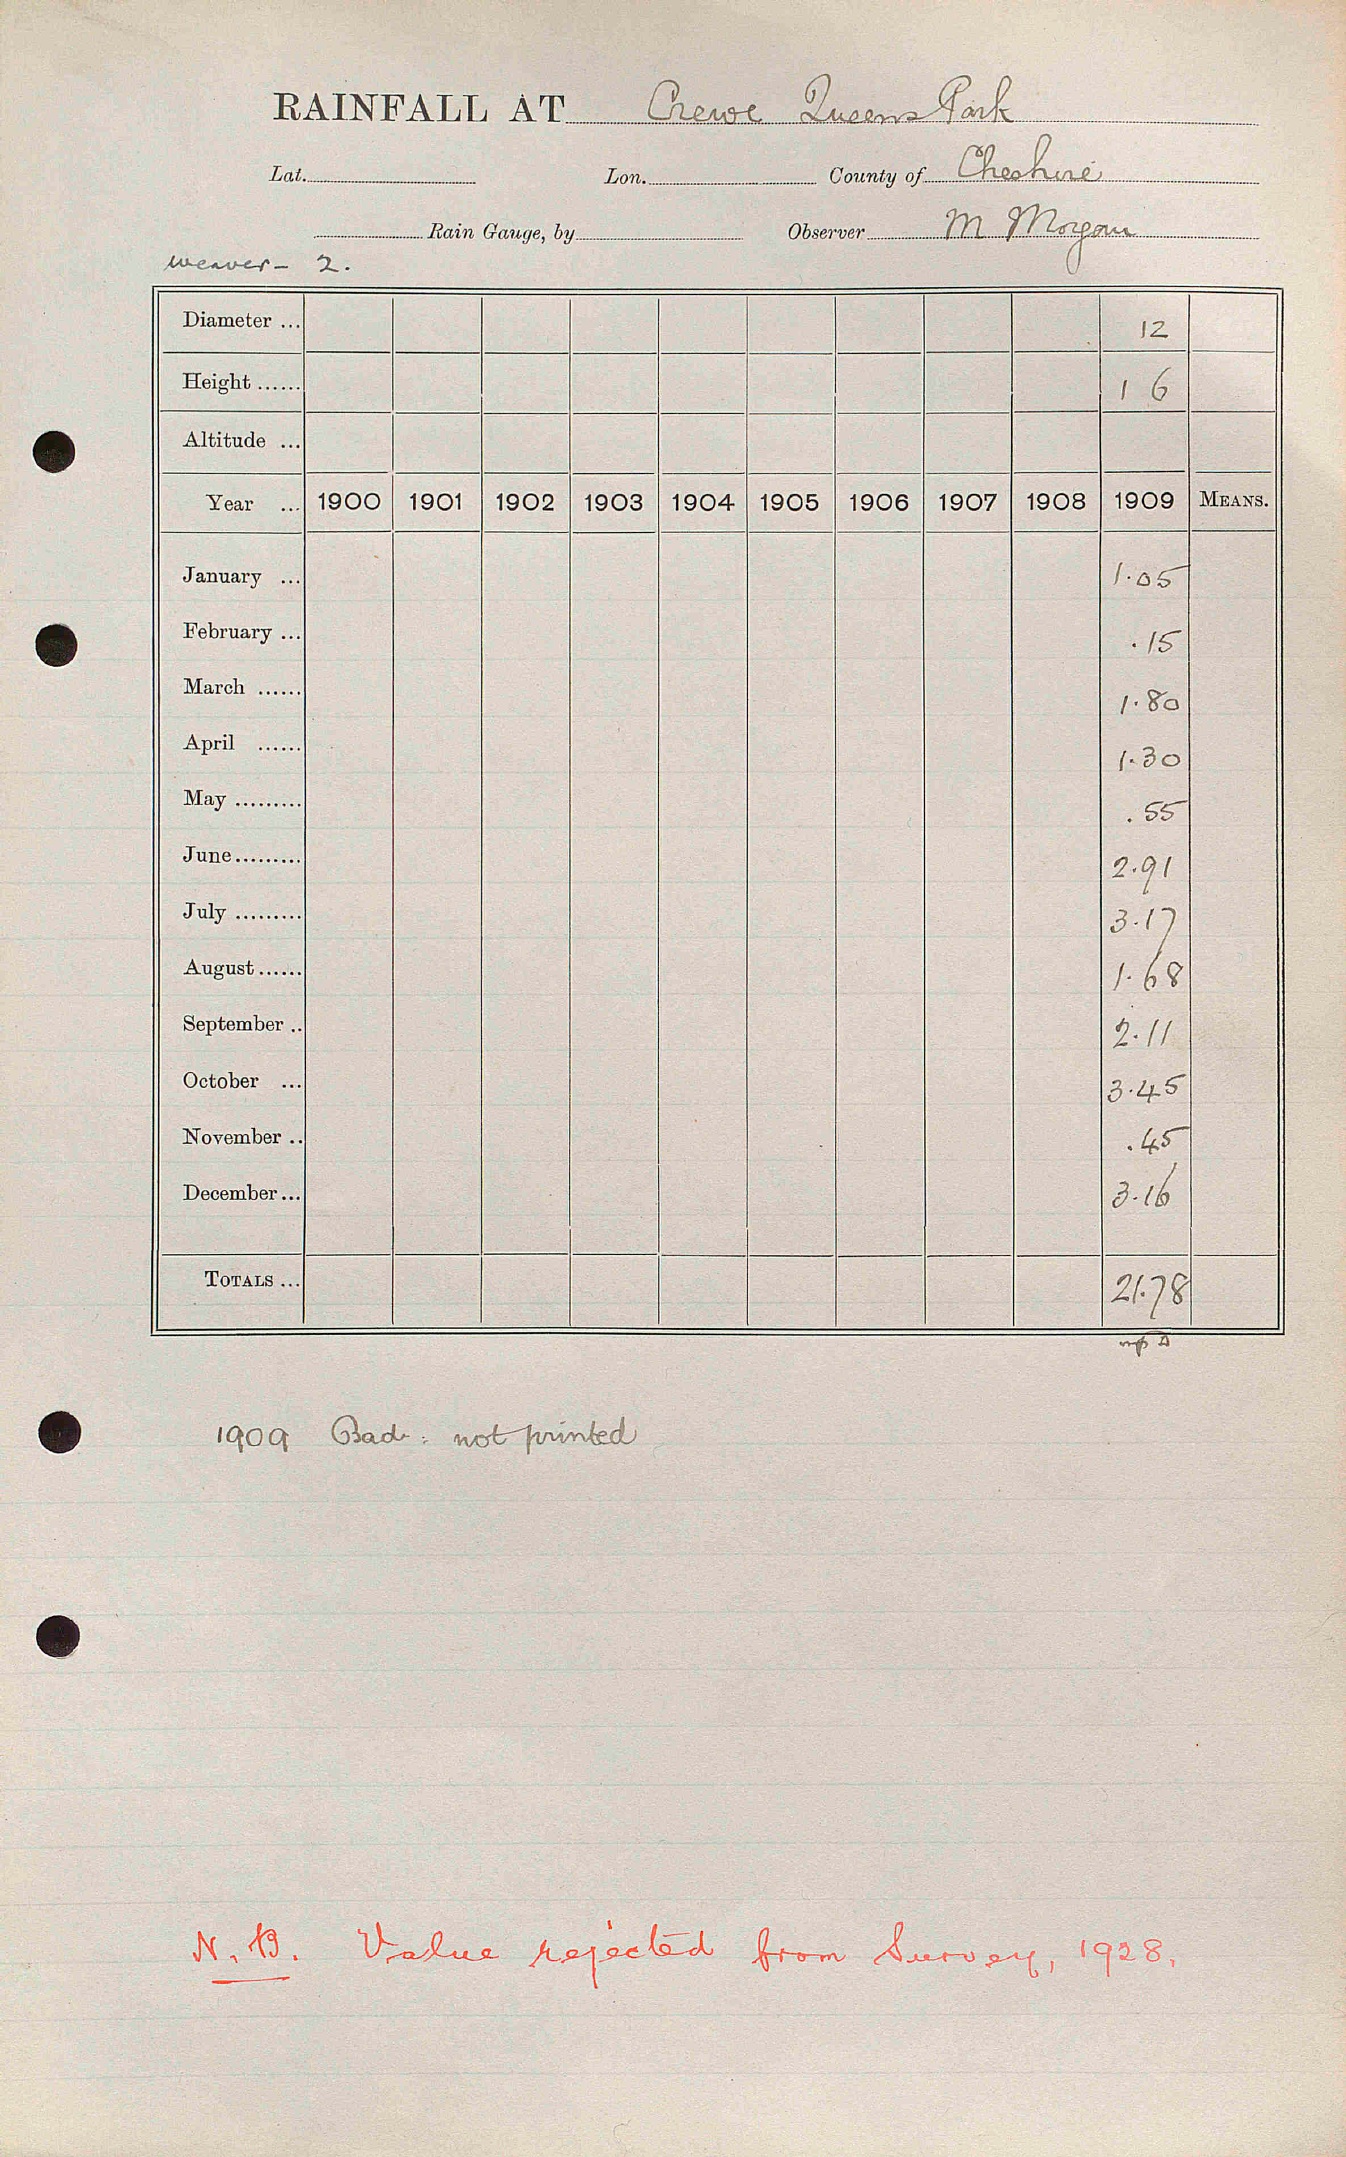 RAINFALL AT Crewe Queens Park
Lat. Lon. County of Cheshire
Rain Gauge, by Observer M Morgan
Weaver - 2.
Diameter ... 12
Height ...... 1 6
Altitude ...
Year ... 1900 1901 1902 1903 1904 1905 1906 1907 1908 1909 MEANS.
January ... 1.05
February ... .15
March ...... 1.80
April ...... 1.30
May ......... .55
June ......... 2.91
July ......... 3.17
August ...... 1.68
September .. 2.11
October ... 3.45
November .. .45
December ... 3.16
TOTALS ... 21.78
1909 Bad : not printed
N.B. Value rejected from Survey, 1928.